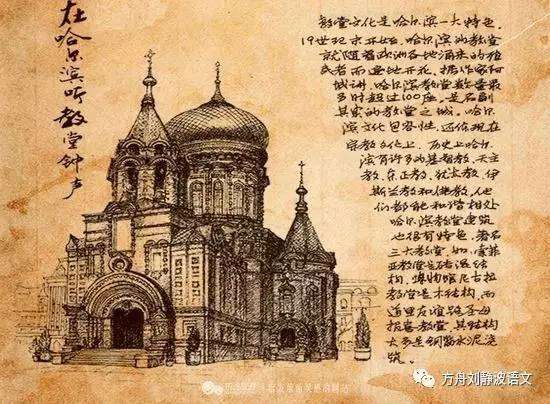 在哈尔滨听教堂钟声
教堂文化是哈尔滨一大特色。
19世纪末开始，哈尔滨的教堂
就随着欧洲各地涌来的殖
民者而遍地开花。据作家阿
城讲，哈尔滨教堂数量最
多时超过100座，是名副
其实的教堂之城。哈尔
滨文化包容性，还体现在
宗教文化上，历史上哈尔
滨有许多的基督教、天主
教、东正教、犹太教、伊
斯兰教和佛教，人
们都能和谐相处
哈尔滨教堂建筑
也很有特色，著名
三大教堂，如，索菲
亚教堂是砖混结
构，博物馆尼古拉
教堂是木结构，而
道里友谊路圣母
报喜教堂，其结构
大多是钢筋水泥浇
筑。
方舟刘静波语文